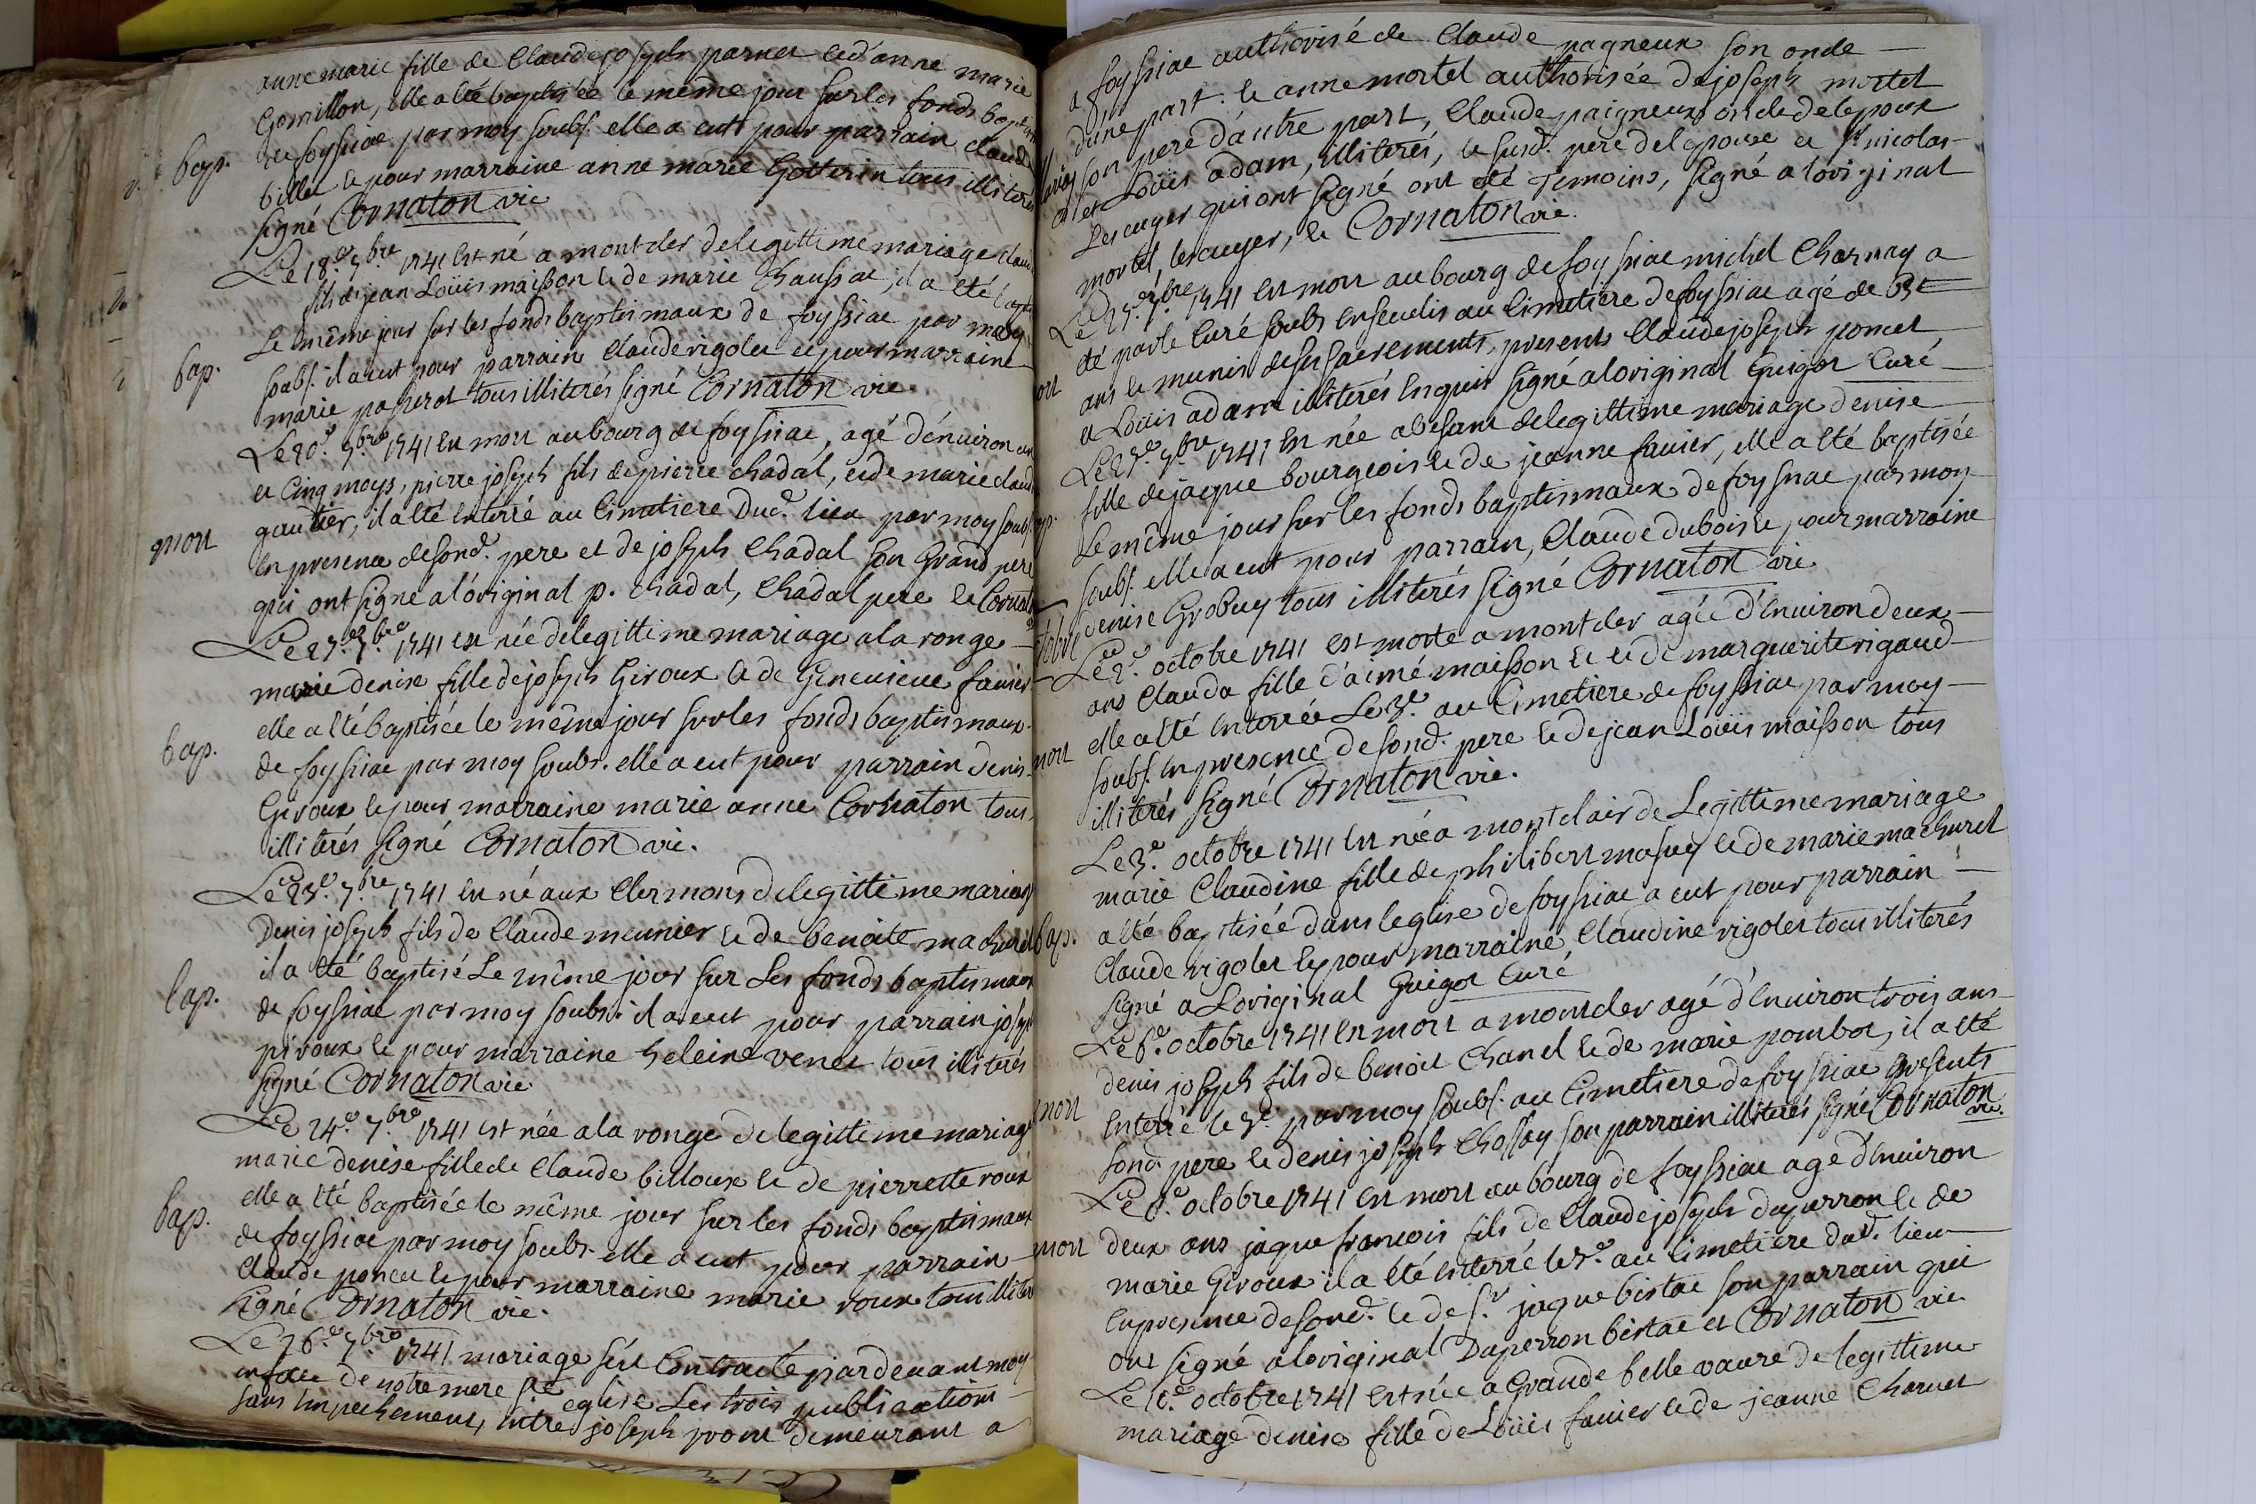 anne marie fille de Claude joseph parnet et d'anne marie
Gomillon, elle a eté baptisée le même jour sur les fonds bapt
bap.
de foyssiac par moy soubs. elle a eut pour parrain claude
billet et pour marraine anne marie Gotterin tous illiterés
signé Cornaton vic
Le 18.e 7.bre 1741 est né a montcler de legittime mariage
fils de jean Loüis maisson et de marie Chaussac, il a eté
Le même jour sur les fonds baptismaux de foyssiac par moy
bap.
soubs. il a eut pour parrain Claude rigolet et pour marraine
marie paperot tous illiterés signé Cornaton vic
Le 20.e 7.bre 1741 est mort au bourg de foyssiac, agé d'environ un
et cinq moys, pierre joseph fils de pierre chadal, et de marie claud
gautier, il a eté enterré au Cimetiere dud. lieu par moy soubs
mort
en presence de sond. pere et de joseph Chadal son grand pere
qui ont signé a l'original p. chadal, Chadal pere et Cornaton
Le 23.e 7.bre 1741 est née de legittime mariage a la ronge
marie denise fille de joseph Giroux et de Genevieve favier
elle a eté baptisée le même jour sur les fonds baptismaux
bap.
de foyssiac par moy soubs. elle a eut pour parrain denis
Giroux et pour marraine marie anne Cornaton tous
illiterés signé Cornaton vic.
Le 23.e 7.bre 1741 est né aux Clermons de legittime mariage
Denis joseph fils de Claude meunier et de benoite machurel
il a eté baptisé Le même jour sur Les fonds baptismaux
bap.
de foyssiac par moy soubs. il a eut pour parrain joseph
piroux et pour marraine heleine venet tous illiterés
signé Cornaton vic
Le 24.e 7.bre 1741 est née a la ronge de legittime mariage
marie denise fille de Claude billoux et de pierrette roux
elle a eté baptisée le même jour sur les fonds baptismaux
bap.
de foyssiac par moy soubs. elle a eut pour parrain
Claude poncet et pour marraine marie roux tous illiterés
signé Cornaton vic.
Le 26.e 7.bre 1741 mariage s'est Contracté pardevant moy
en face de notre mere ste eglise Les trois publications
sans empechement, entre joseph demeurant a
a foyssiac authorisé de Claude pagneux son oncle
d'une part. et anne mortel authorisée de joseph mortel
son pere d'autre part, Claude paigneux oncle de lepoux
et Loüis adam, illiterés, le susd. pere de lepouse et sr nicolas
Lescuyer qui ont signé ont eté temoins, signé a loriginal
mortel, lescuyer, et Cornaton vic.
Le 27.e 7.bre 1741 est mort au bourg de foyssiac michel Charnay a
eté par le Curé soubs enseveli au Cimetiere de foyssiac agé de
mort
ans et munis de ses sacrements, presents Claude joseph poncet
et Loüis adam illiterés enquis signé a loriginal Guigot Curé
Le 27.e 7.bre 1741 est née a de legittime mariage denise
fille de jaque bourgeois et de jeanne favier, elle a eté baptisée
bap.
Le même jour sur les fonds baptismaux de foyssiac par moy
soubs. elle a eut pour parrain, Claude dubois et pour marraine
denise Grobuy tous illiterés signé Cornaton vic
Le 2.e octobre 1741 est morte a montcler agée d'Environ deux
ans Clauda fille d'aimé maisson et de marguerite rigaud
elle a eté enterrée Le 3.e au Cimetiere de foyssiac par moy
mort
soubs. en presence de sond. pere et de jean Loüis maisson tous
illiterés signé Cornaton vic.
Le 3.e octobre 1741 est née a montclair de Legittime mariage
marie Claudine fille de philibert et de marie machurel
a eté baptisée dans leglise de foyssiac a eut pour parrain
bap.
Claude rigolet et pour marraine Claudine rigolet tous illiterés
signé a Loriginal Guigot Curé
Le 6.e octobre 1741 est mort a montcler agé d'Environ trois ans
denis joseph fils de benoit Chanel et de marie poulot, il a eté
mort
Enterré le 7.e par moy soubs. au Cimetiere de foyssiac presents
sond. pere et denis joseph Chossay son parrain illiterés signé Cornaton
vic.
Le 6.e octobre 1741 est mort au bourg de foyssiac agé d'Environ
mort
deux ans jaque françois fils de Claude joseph duperron et de
marie Giroux il a eté enterré le 7.e au Cimetiere dud. lieu
en presence de sond. et de s.r jaque bistac son parrain qui
ont signé a loriginal Duperron bistac et Cornaton vic
octobre 1741 est née a Grande belle vavre de legittime
mariage denise fille de Loüis favier et de jeanne Charnet